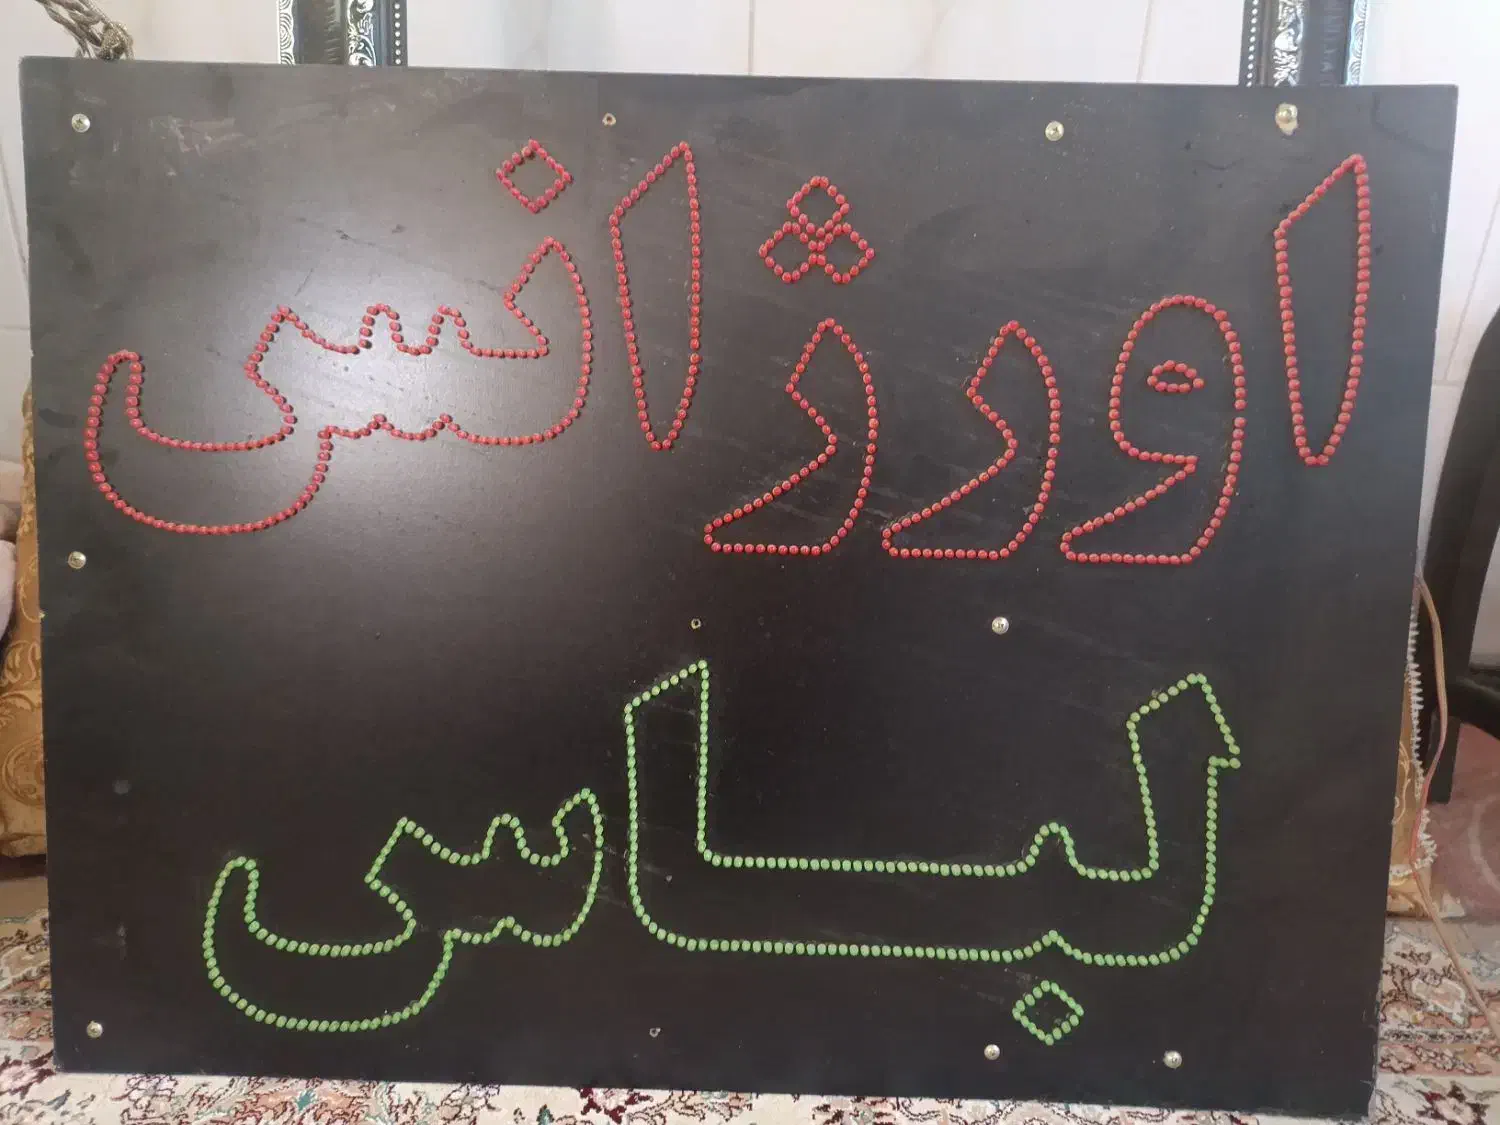 اورژانس
لباس